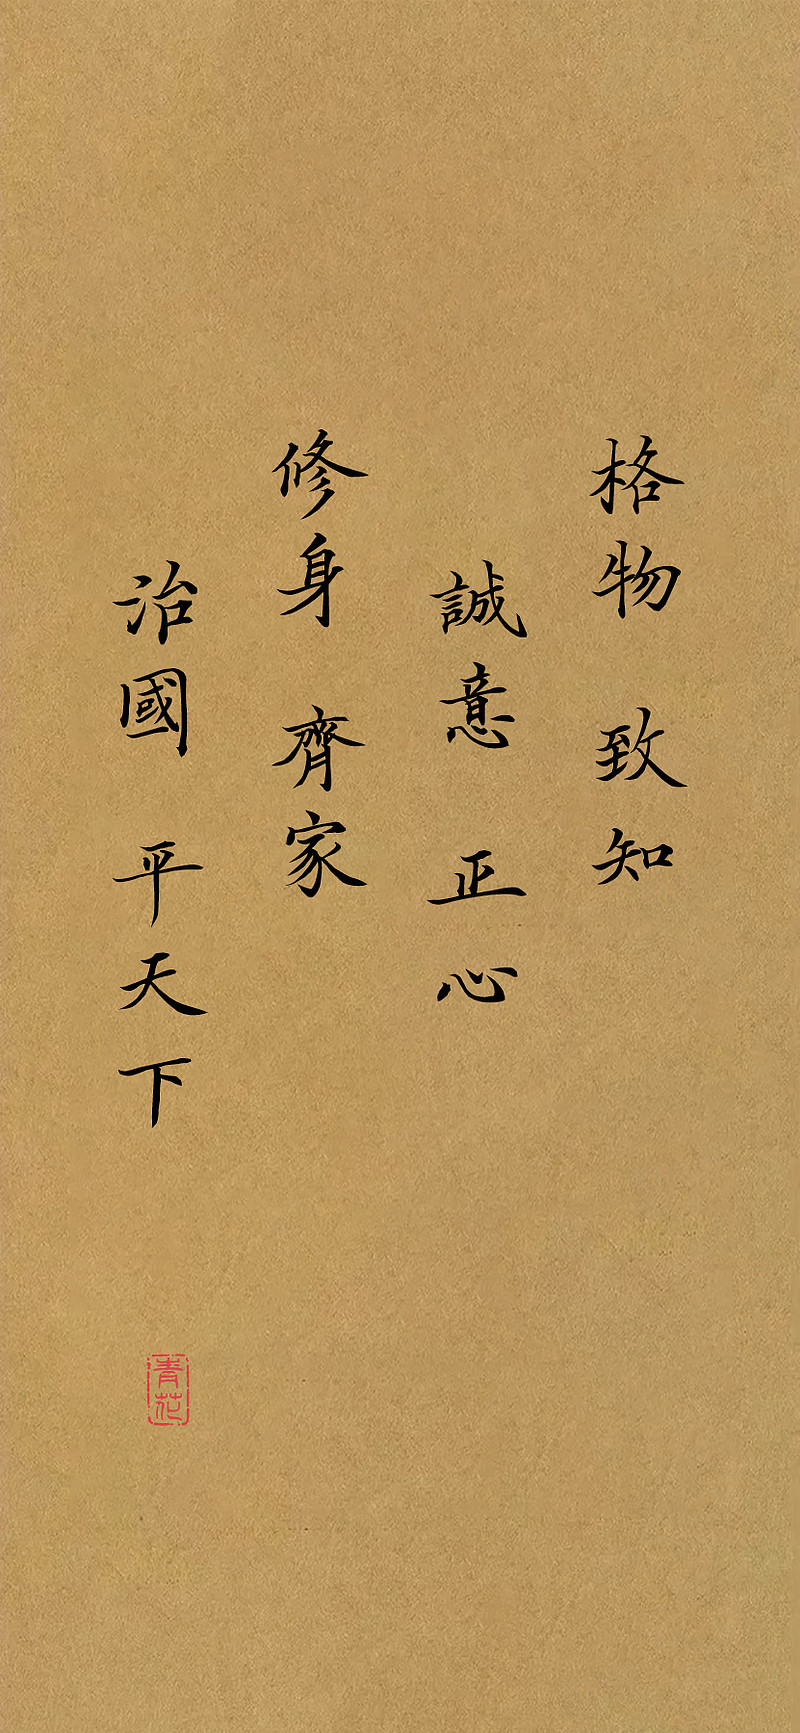 格物 致知
誠意 正心
修身 齊家
治國 平天下
青花